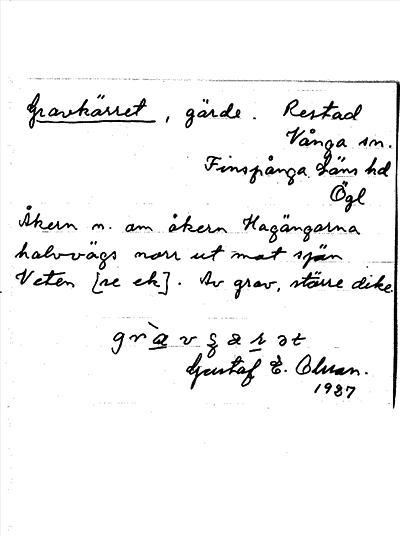 Gravkärret, gärde. Restad
Vånga sn.
Finspånga Läns hd
Ögl
Åkern n. om åkern Hagängarna
halvvägs norr ut mot sjön
Veten [se ek]. Av grav, större dike
Gustaf E. Olsson.
1927